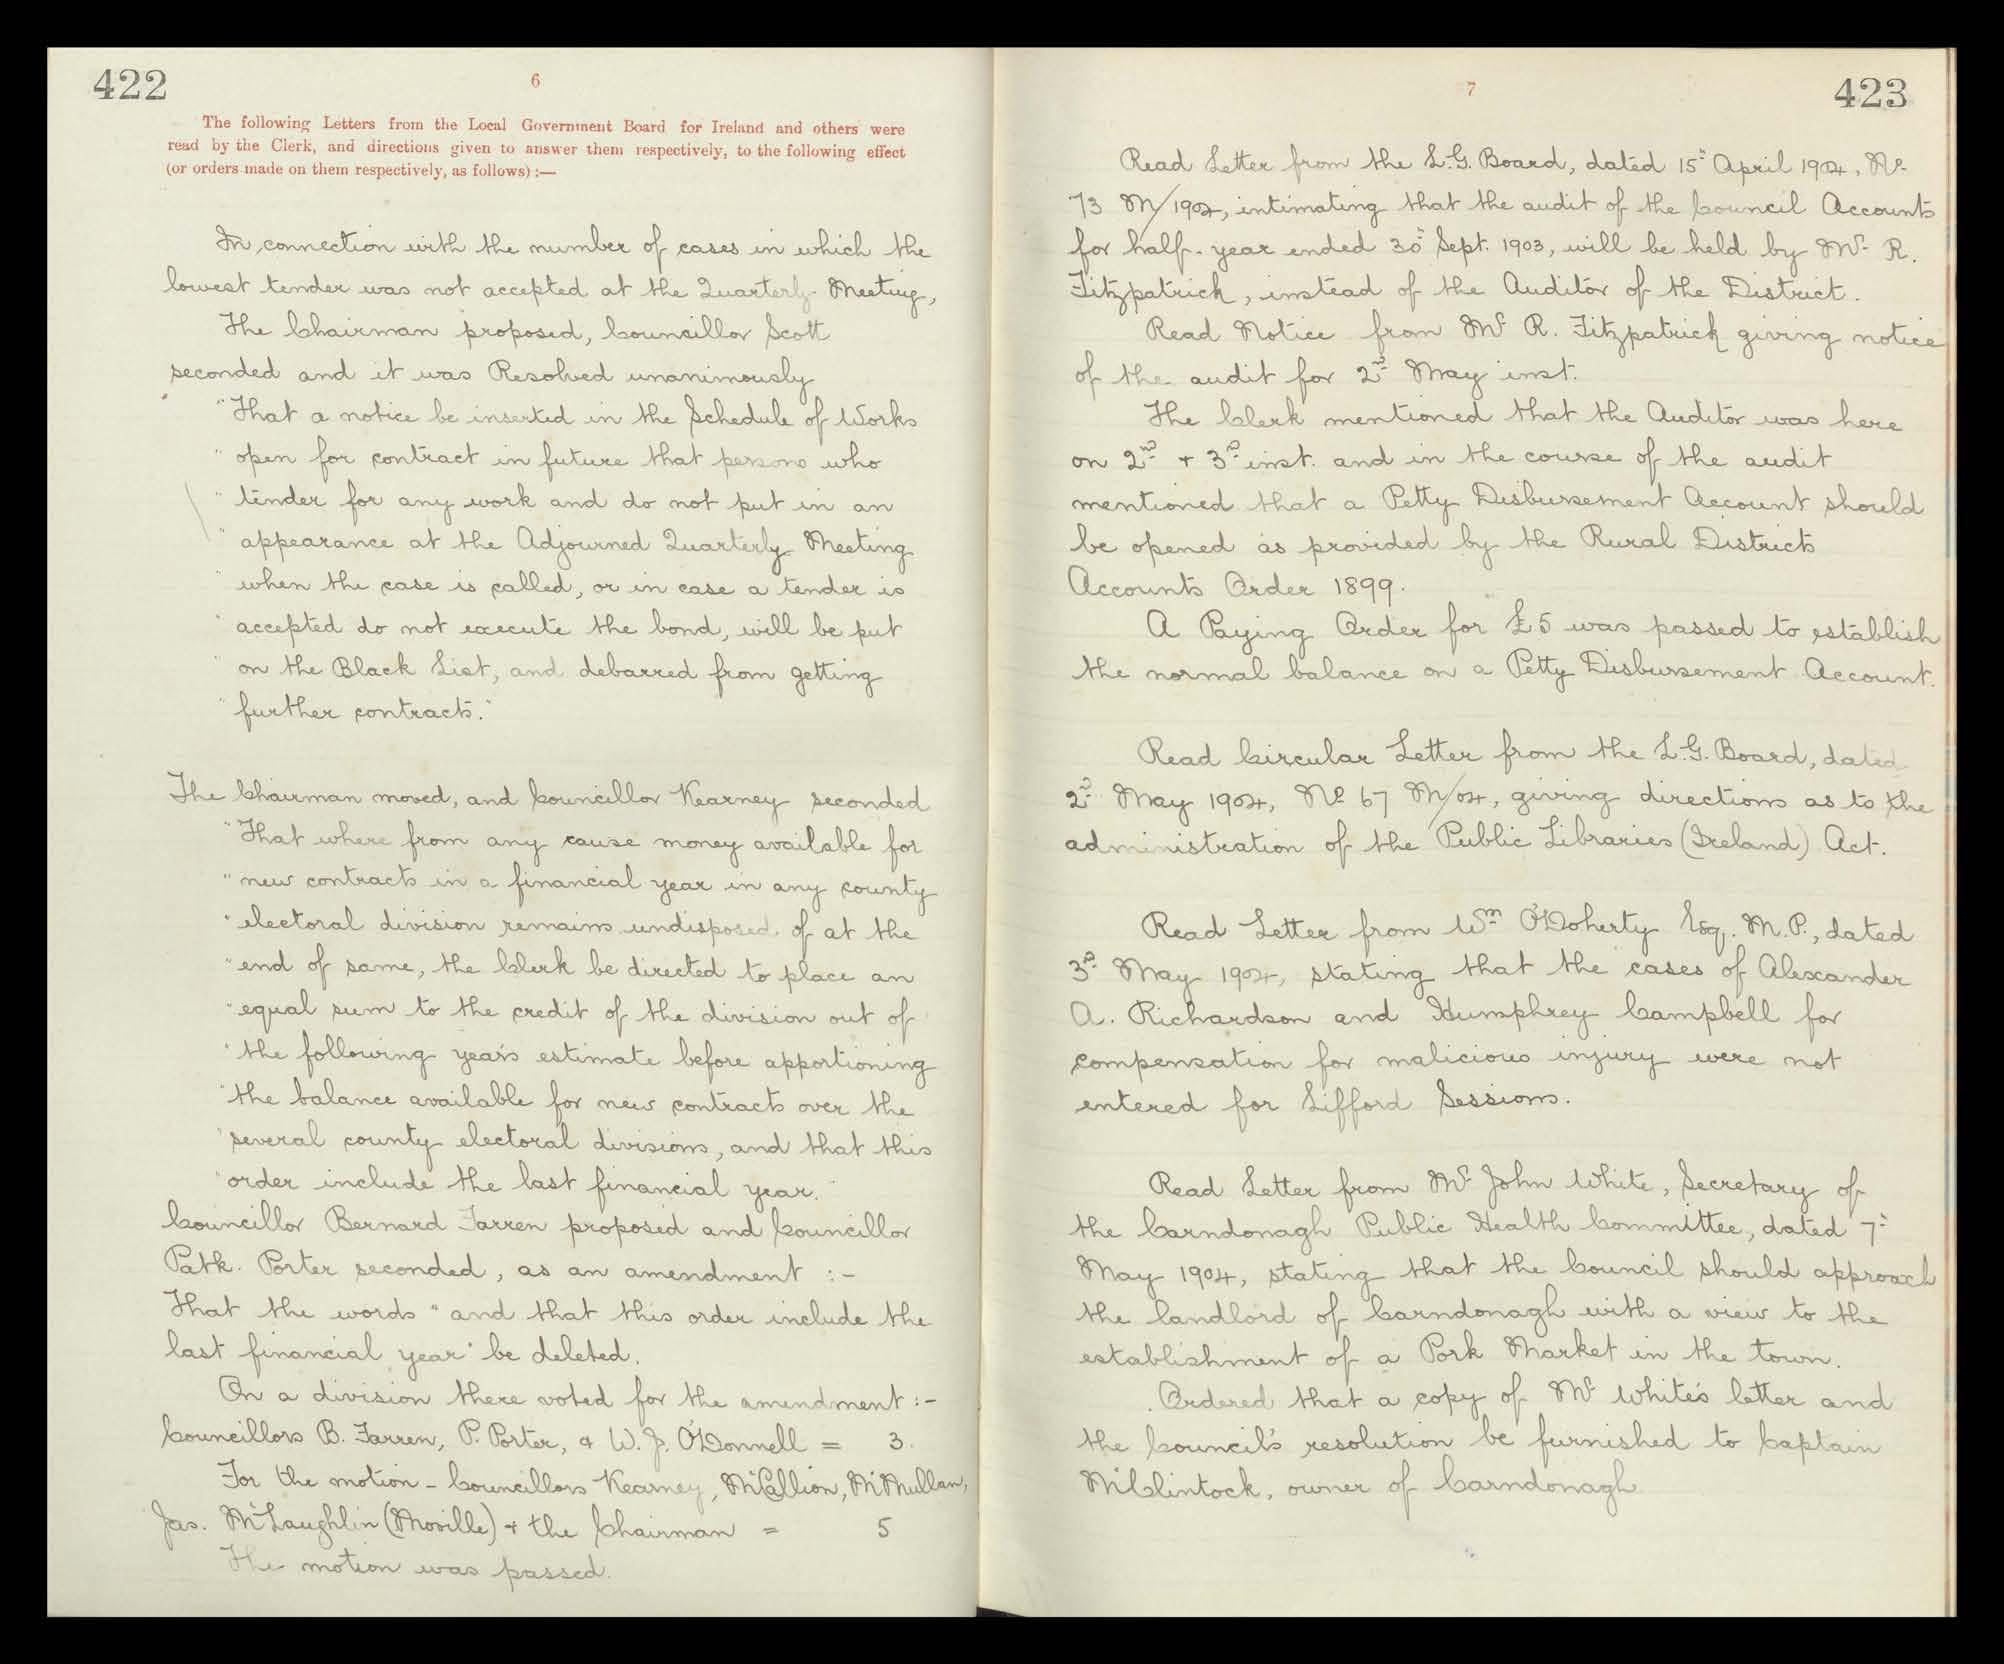 422
6
The following Letters from the Local Government Board for Ireland and others were
read by the Clerk, and directions given to answer them respectively, to the following effect
(or orders made on them respectively, as follows) :—
In connection with the number of cases in which the
lowest tender was not accepted at the Quarterly Meeting,
The Chairman proposed, Councillor Scott
seconded and it was Resolved unanimously
"That a notice be inserted in the Schedule of Works
" open for contract in future that persons who
" tender for any work and do not put in an
" appearance at the Adjourned Quarterly Meeting
" when the case is called, or in case a tender is
" accepted do not execute the bond, will be put
" on the Black List, and debarred from getting
" further contracts."
The Chairman moved, and Councillor Kearney seconded
"That where from any cause money available for
" new contracts in a financial year in any county
" electoral division remains undisposed of at the
" end of same, the Clerk be directed to place an
" equal sum to the credit of the division out of
" the following year's estimate before apportioning
" the balance available for new contracts over the
" several county electoral divisions, and that this
" order include the last financial year."
Councillor Bernard Farren proposed and Councillor
Patk. Porter seconded, as an amendment :-
That the words "and that this order include the
last financial year" be deleted.
On a division there voted for the amendment :-
Councillors B. Farren, P. Porter, & W. J. O'Donnell = 3.
For the motion - Councillors Kearney, McCallion, McMullan,
Jas. McLaughlin (Moville) + the Chairman = 5
The motion was passed.
7
423
Read Letter from the L.G. Board, dated 15th April 1904, No.
73 M/1904, intimating that the audit of the Council Accounts
for half-year ended 30th Sept. 1903, will be held by Mr. R.
Fitzpatrick, instead of the Auditor of the District.
Read Notice from Mr R. Fitzpatrick giving notice
of the audit for 2nd May inst.
The Clerk mentioned that the Auditor was here
on 2nd + 3rd inst. and in the course of the audit
mentioned that a Petty Disbursement Account should
be opened as provided by the Rural Districts
Accounts Order 1899.
A Paying Order for £5 was passed to establish
the normal balance on a Petty Disbursement Account.
Read Circular Letter from the L.G. Board, dated
2nd May 1904, No 67 M/04, giving directions as to the
administration of the Public Libraries (Ireland) Act.
Read Letter from Wm O'Doherty Esq. M.P., dated
3rd May 1904, stating that the cases of Alexander
A. Richardson and Humphrey Campbell for
compensation for malicious injury were not
entered for Lifford Sessions.
Read Letter from Mr John White, Secretary of
the Carndonagh Public Health Committee, dated 7th
May 1904, stating that the Council should approach
the landlord of Carndonagh with a view to the
establishment of a Pork Market in the town.
Ordered that a copy of Mr White's letter and
the Council's resolution be furnished to Captain
McClintock, owner of Carndonagh